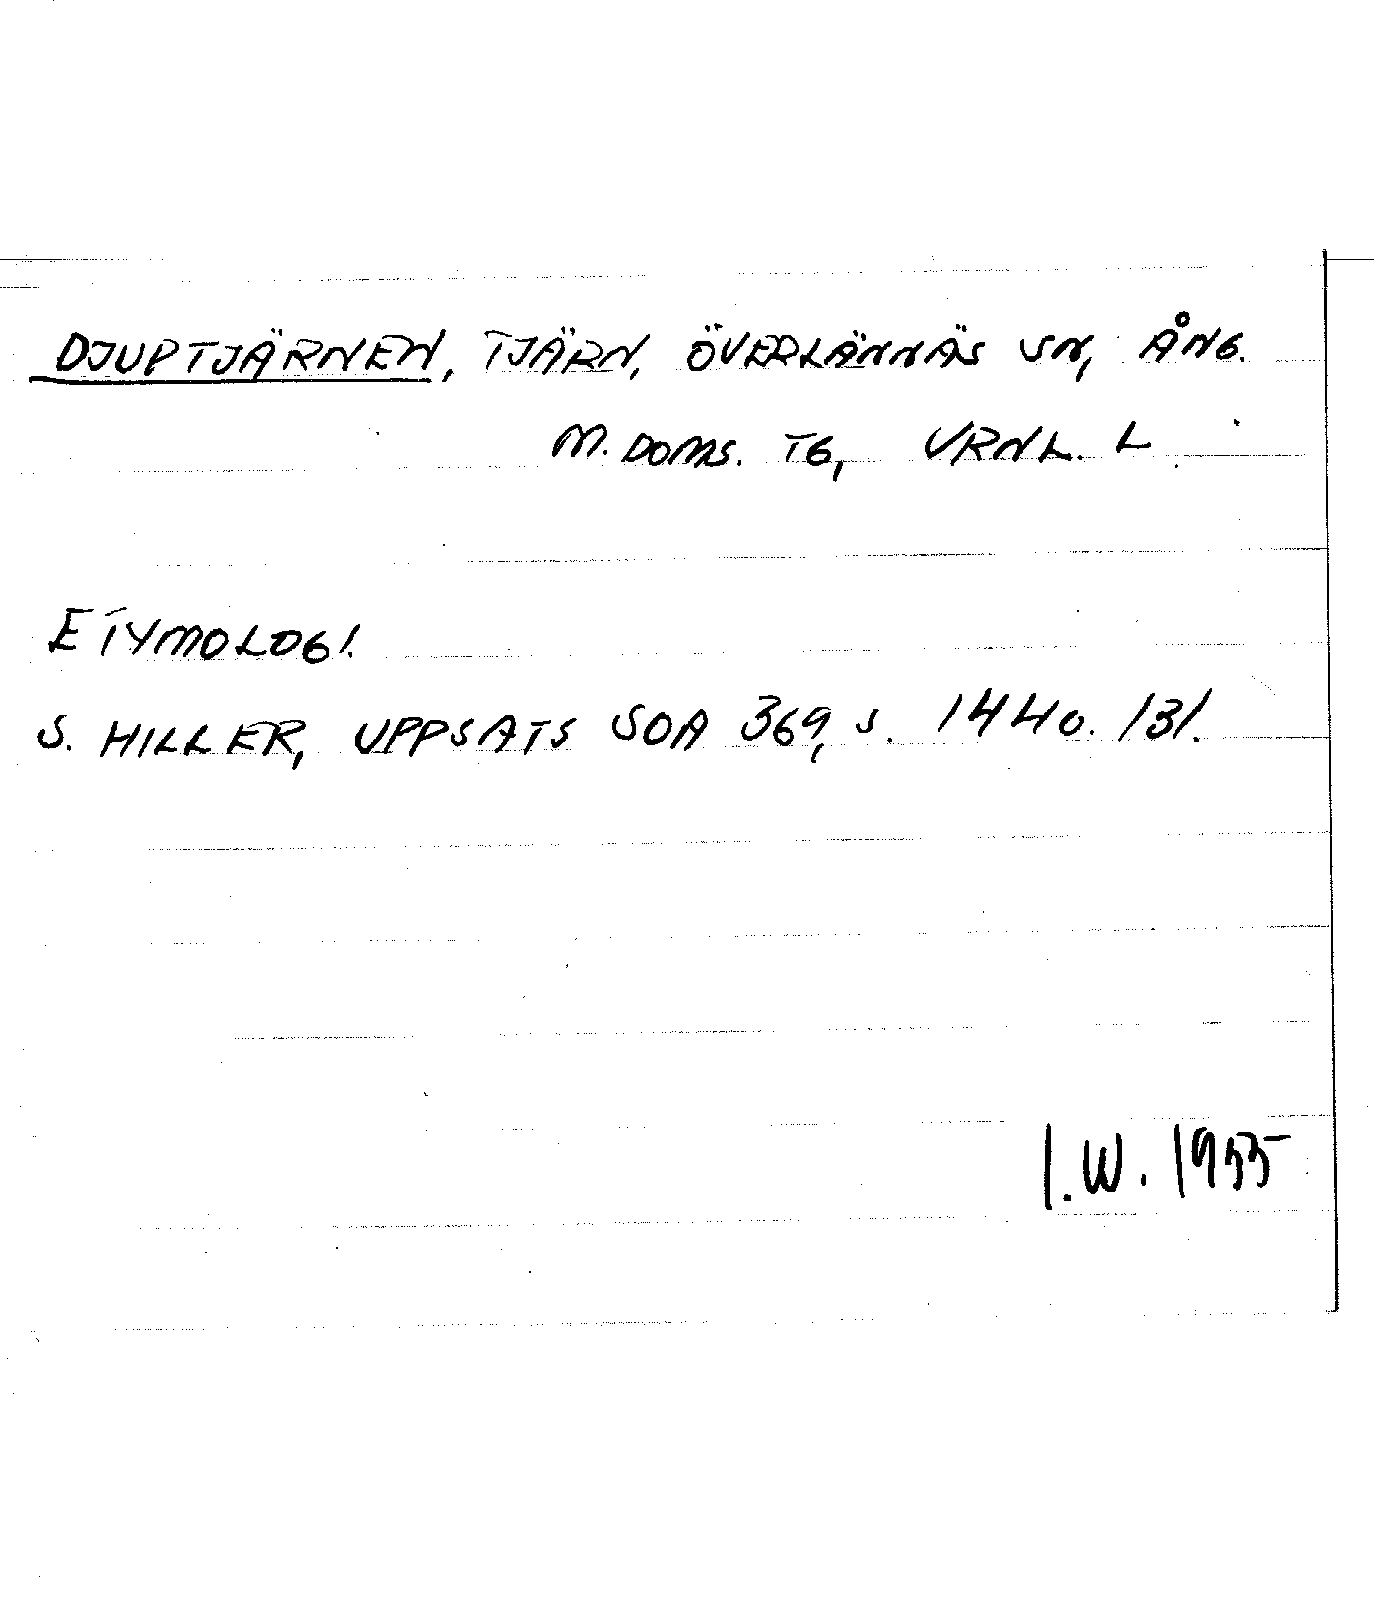 DJUPTJÄRNEN, TJÄRN, ÖVERLÄNNÄS SN, ÅNG.
M. DOMS. TG, VRNL. L
ETYMOLOGI.
S. HILLER, UPPSATS SOA 369, S. 144 O. 131.
I.W. 1955